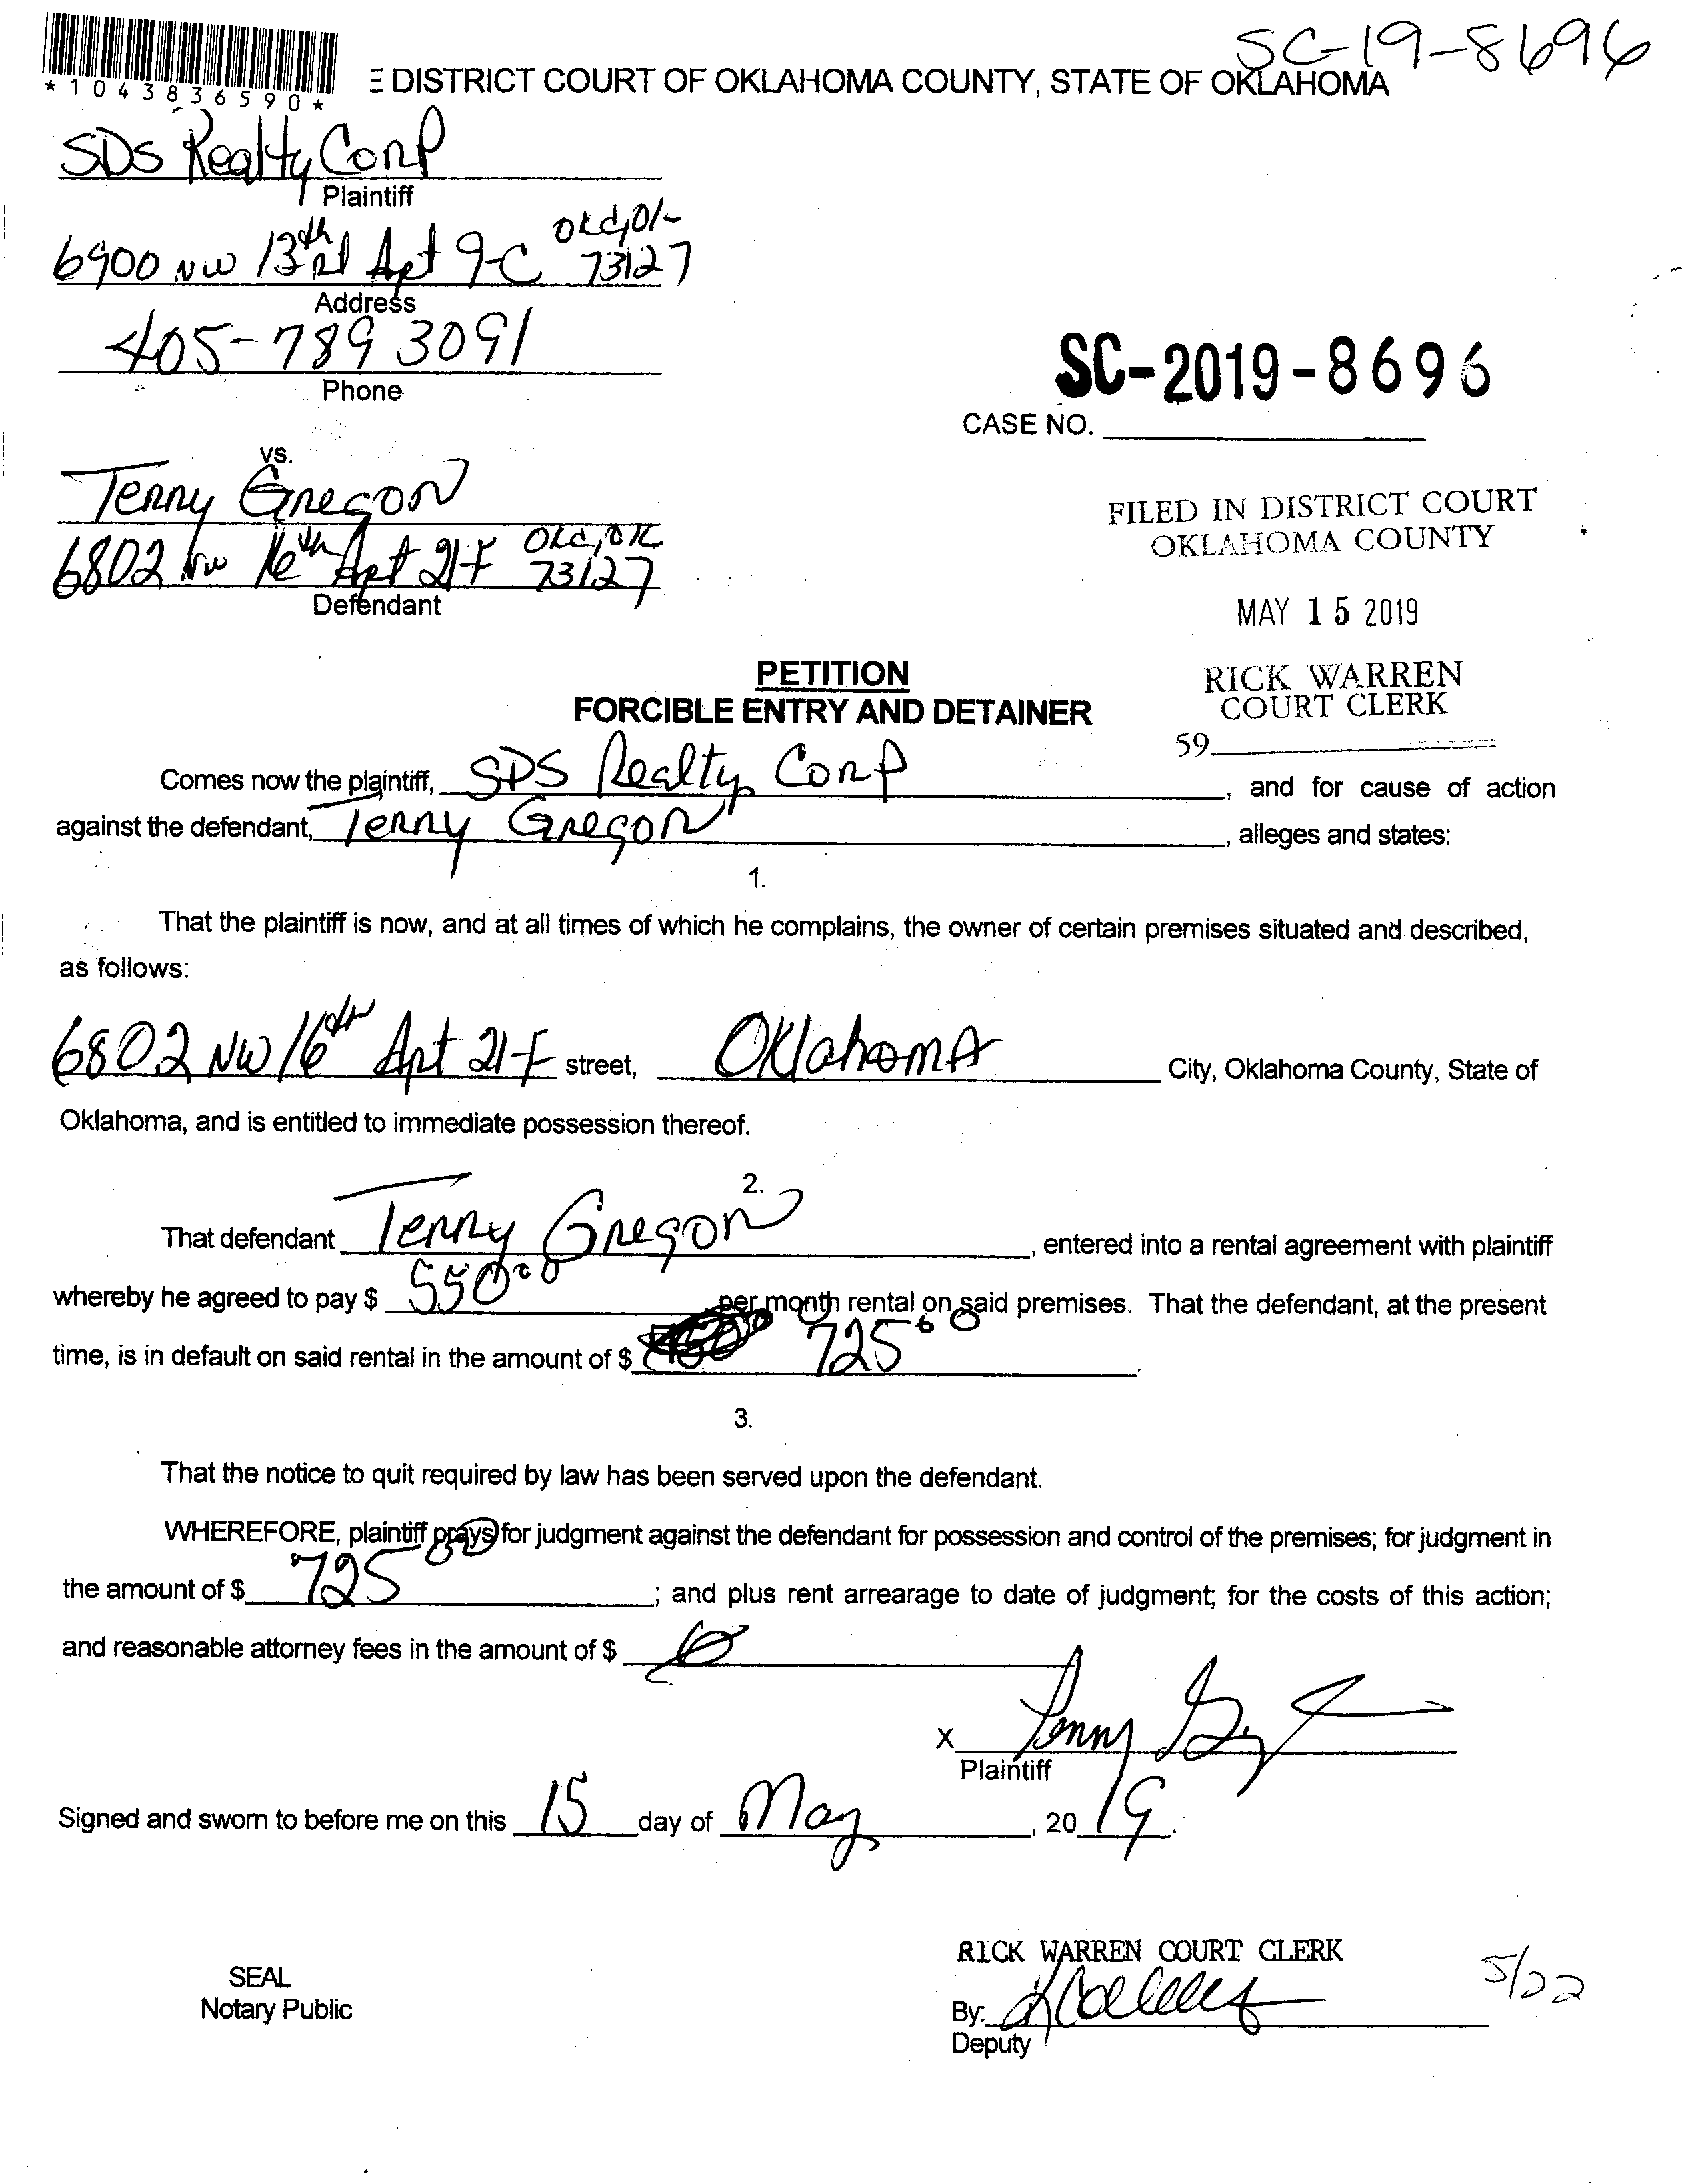 SC-19-8696
*1043836590*
E DISTRICT COURT OF OKLAHOMA COUNTY, STATE OF OKLAHOMA
SDS Realty Corp
Plaintiff
6900 NW 13th Apt 9-C Okc, Ok 73127
Address
405-789 3091
Phone
SC-2019-8696
CASE NO.
vs.
Terry Gregor
6802 NW 16th Apt 21-F Okc, OK 73127
Defendant
FILED IN DISTRICT COURT
OKLAHOMA COUNTY
MAY 15 2019
RICK WARREN
COURT CLERK
59
PETITION
FORCIBLE ENTRY AND DETAINER
Comes now the plaintiff, SDS Realty Corp, and for cause of action
against the defendant, Terry Gregor, alleges and states:
1.
That the plaintiff is now, and at all times of which he complains, the owner of certain premises situated and described,
as follows:
6802 NW 16th Apt 21-F street, Oklahoma City, Oklahoma County, State of
Oklahoma, and is entitled to immediate possession thereof.
2.
That defendant Terry Gregor, entered into a rental agreement with plaintiff
whereby he agreed to pay $ 550.00 per month rental on said premises. That the defendant, at the present
time, is in default on said rental in the amount of $ 725.00.
3.
That the notice to quit required by law has been served upon the defendant.
WHEREFORE, plaintiff prays for judgment against the defendant for possession and control of the premises; for judgment in
the amount of $ 725.00; and plus rent arrearage to date of judgment; for the costs of this action;
and reasonable attorney fees in the amount of $
X
Plaintiff
Signed and sworn to before me on this 15 day of May, 20 19.
RICK WARREN COURT CLERK
5/22
SEAL
Notary Public
By:
Deputy